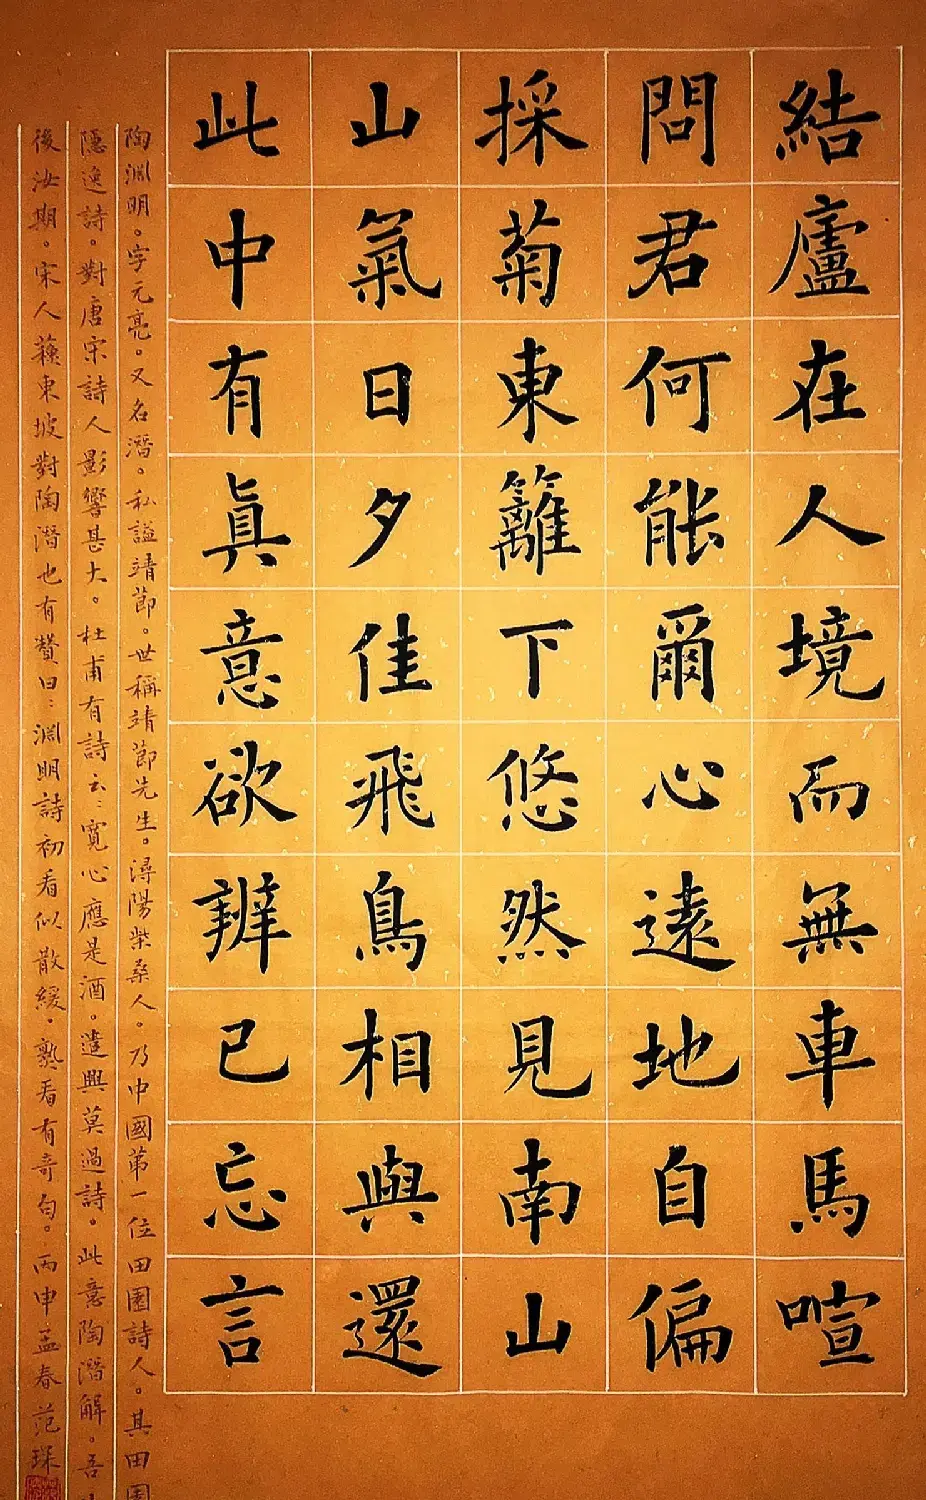 結廬在人境而無車馬喧
問君何能爾心遠地自偏
採菊東籬下悠然見南山
山氣日夕佳飛鳥相與還
此中有眞意欲辨已忘言
陶淵明。字元亮。又名潛。私謚靖節。世稱靖節先生。潯陽柴桑人。乃中國第一位田園詩人。其田園
隱逸詩。對唐宋詩人影響甚大。杜甫有詩云：寬心應是酒。遣興莫過詩。此意陶潛解。吾
後汝期。宋人蘇東坡對陶潛也有贊曰：淵明詩初看似散緩，熟看有奇句。丙申孟春范琛